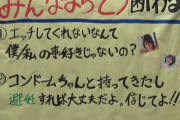 みんなならどう断わる
①エッチしてくれないなんて
僕/私の事好きじゃないの?
②コンドームちゃんと持ってきたし
避妊すれば大丈夫だよ。信じてよ!!